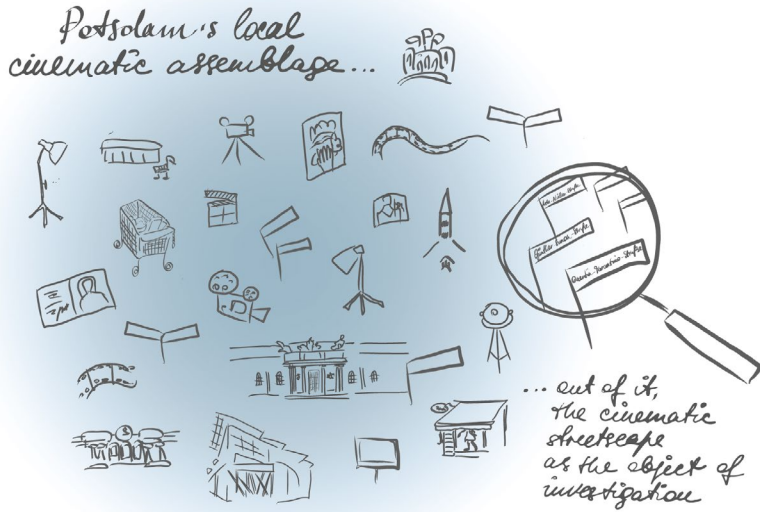 Potsdam's local
cinematic assemblage...
Quentin-Tarantino-Straße
... out of it,
the cinematic
streetscape
as the object of
investigation